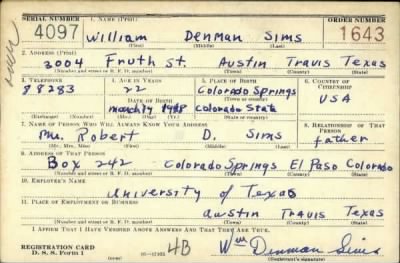 SERIAL NUMBER 1. NAME (Print) ORDER NUMBER
4097 William Denman Sims 1643
(First) (Middle) (Last)
2. ADDRESS (Print)
3004 Fruth St. Austin Travis Texas
(Number and street or R. F. D. number) (Town) (County) (State)
3. TELEPHONE 4. AGE IN YEARS 5. PLACE OF BIRTH 6. COUNTRY OF CITIZENSHIP
88283 22 Colorado Springs USA
DATE OF BIRTH (Town or county)
Colorado State
(Mo.) (Day) (Yr.) (State or country)
7. NAME OF PERSON WHO WILL ALWAYS KNOW YOUR ADDRESS 8. RELATIONSHIP OF THAT PERSON
Mr. Robert D. Sims father
(Mr., Mrs., Miss) (First) (Middle) (Last)
9. ADDRESS OF THAT PERSON
Box 242 Colorado Springs El Paso Colorado
(Number and street or R. F. D. number) (Town) (County) (State)
10. EMPLOYER'S NAME
University of Texas
11. PLACE OF EMPLOYMENT OR BUSINESS
Austin Travis Texas
(Number and street or R. F. D. number) (Town) (County) (State)
I AFFIRM THAT I HAVE VERIFIED ABOVE ANSWERS AND THAT THEY ARE TRUE.
REGISTRATION CARD
D. S. S. Form 1 4B Wm Denman Sims
(Registrant's signature)